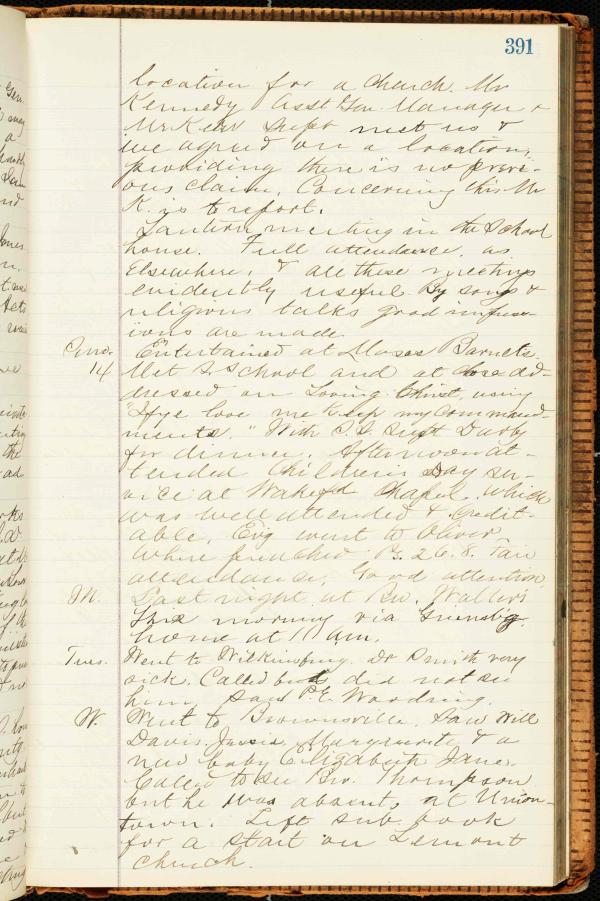 391
location for a church. Mr
Kennedy Asst Gen Manager &
Mr Kerr Supt met us &
we agreed on a location,
providing there is no previ-
ous claim. Concerning this Mr
K. is to report.
Lantern meeting in the School
house. Full attendance, as
Elsewhere, & all these meetings
evidently useful. By song &
religious talks good impress-
ions are made
Entertained at Moses Barnets.
14 Met S. School and at close ad-
dressed on Loving Christ, using
"If ye love me Keep my Command-
ments." With S.S. Supt Darby
for dinner. Afternoon at-
tended Children's Day ser-
vice at Chapel which
was well attended & credit-
able. Evg went to Oliver
where preached Ps. 26.8. Fair
attendance. Good attention
M. Last night at Bro. Waller's
This morning via
home at 11 am.
Tues. Went to Wilkinsburg. Dr Smith very
sick. Called but did not see
him. Saw P.E. Woodring.
W. Went to Brownsville. Saw Will
Davis, Jessie, Marguerite & a
new baby Elizabeth Jane.
Called to see Bro. Thompson
but he was absent, at Union-
town. Left sub. book
for a start on Lemont
church.